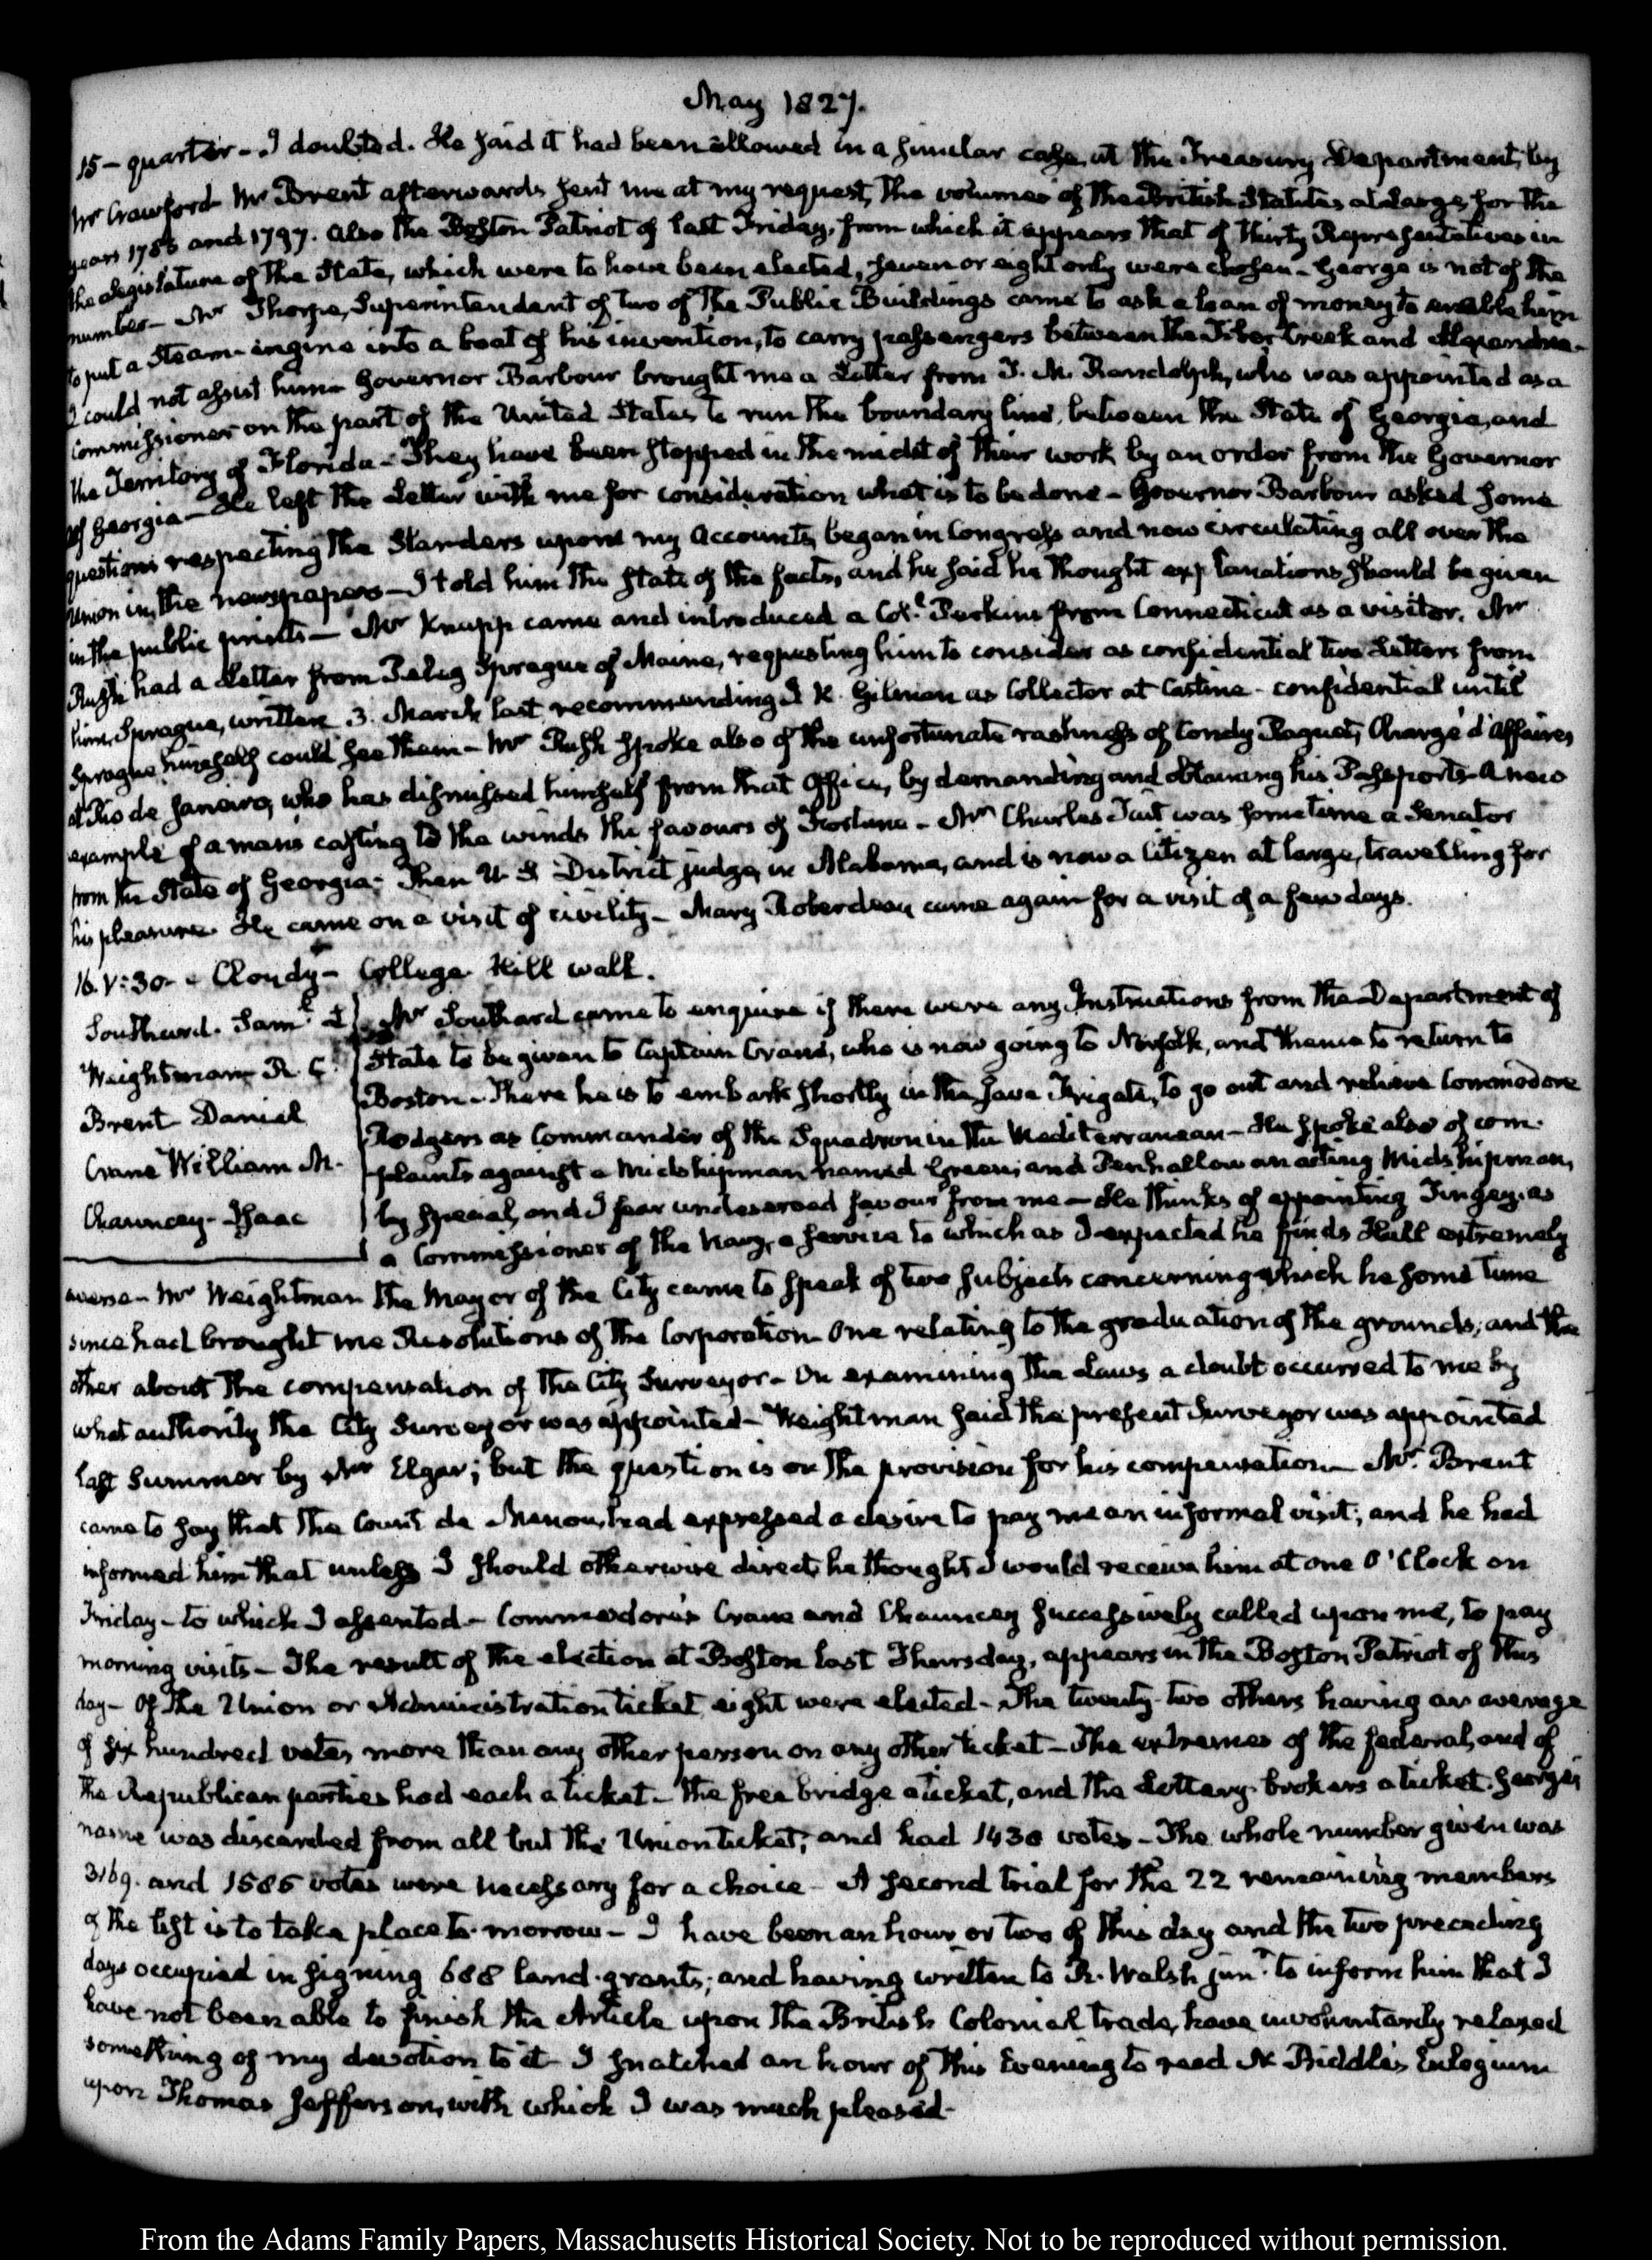 May 1827.
15 - quarter - I doubted. He said it had been allowed in a similar case, at the Treasury Department, by
Mr Crawford Mr Brent afterwards sent me at my request, the volumes of the British Statutes at large, for the
years 1788 and 1797. also the Boston Patriot of last Friday, from which it appears that of thirty Representatives in
the Legislature of the State, which were to have been elected, seven or eight only were chosen - George is not of the
number - Mr Thorpe, Superintendent of two of the Public Buildings came to ask a loan of money to enable him
to put a steam-ingine into a boat of his invention, to carry passengers between the Tiber Creek and Alexandria -
I could not assist him - Governor Barbour brought me a Letter from T. M. Randolph, who was appointed as a
Commissioner on the part of the United States to run the boundary line, between the State of Georgia, and
the Territory of Florida - They have been stopped in the midst of their work by an order from the Governor
of Georgia - He left the Letter with me for consideration what is to be done - Governor Barbour asked some
questions respecting the Slanders upon my Accounts, began in Congress and now circulating all over the
Union in the newspapers - I told him the state of the facts, and he said he thought explanations should be given
in the public prints - Mr Knapp came and introduced a Col. Perkins from Connecticut as a visitor. Mr
Rush had a Letter from Peleg Sprague of Maine, requesting him to consider as confidential two Letters from
him, Sprague, written 3. March last, recommending I K. Gilman as Collector at Castine - confidential until
Sprague himself could see them - Mr Rush spoke also of the unfortunate rashness of Condy Raguet, Chargé d'Affaires
at Rio de Janeiro, who has dismissed himself from that Office, by demanding and obtaining his Passports - A new
example of a man's casting to the winds the favours of Fortune - Mr Charles Tait was sometime a Senator
from the State of Georgia; then U. S. District judge in Alabama, and is now a Citizen at large, travelling for
his pleasure. He came on a visit of civility - Mary Roberdeau came again for a visit of a few days.
16. V:30. Cloudy - College Hill walk.
Southard. Saml L
Weightman R. C.
Brent Daniel
Crane William M.
Chauncey Isaac
Mr Southard came to enquire if there were any Instructions from the Department of
State to be given to Captain Crane, who is now going to Norfolk, and thence to return to
Boston - There he is to embark shortly in the Java Frigate, to go out and relieve Commodore
Rodgers as Commander of the Squadron in the Mediterranean - He spoke also of com-
plaints against a Midshipman named Green, and Penhallow an acting Midshipman,
by special, and I fear undeserved favour from me - He thinks of appointing Tingey as
a Commissioner of the Navy, a service to which as I expected he finds Hull extremely
averse - Mr Weightman the Mayor of the City came to speak of two subjects concerning which he some time
since had brought me Resolutions of the Corporation - One relating to the graduation of the grounds; and the
other about the compensation of the City Surveyor - On examining the Laws a doubt occurred to me by
what authority the City Surveyor was appointed - Weightman said the present Surveyor was appointed
last Summer by Mr Elgar; but the question is on the provision for his compensation - Mr. Brent
came to say that the Count de Menou, had expressed a desire to pay me an informal visit; and he had
informed him that unless I should otherwise direct, he thought I would receive him at one O'Clock on
Friday - to which I assented - Commodores Crane and Chauncey successively called upon me, to pay
morning visits - The result of the election at Boston last Thursday, appears in the Boston Patriot of this
day - Of the Union or Administration ticket eight were elected - The twenty-two others having an average
of six hundred votes more than any other person on any other ticket - The extremes of the federal, and of
the Republican parties had each a ticket - the free bridge a ticket, and the Lottery-brokers a ticket. George's
name was discarded from all but the Union ticket; and had 1430 votes - The whole number given was
3169. and 1585 votes were necessary for a choice - A second trial for the 22 remaining members
of the list is to take place to-morrow - I have been an hour or two of this day and the two preceding
days occupied in signing 688 land-grants; and having written to R. Walsh junr. to inform him that I
have not been able to finish the Article upon the British Colonial trade, have involuntarily relaxed
something of my devotion to it - I snatched an hour of this Evening to read N. Biddle's Eulogium
upon Thomas Jefferson, with which I was much pleased -
From the Adams Family Papers, Massachusetts Historical Society. Not to be reproduced without permission.